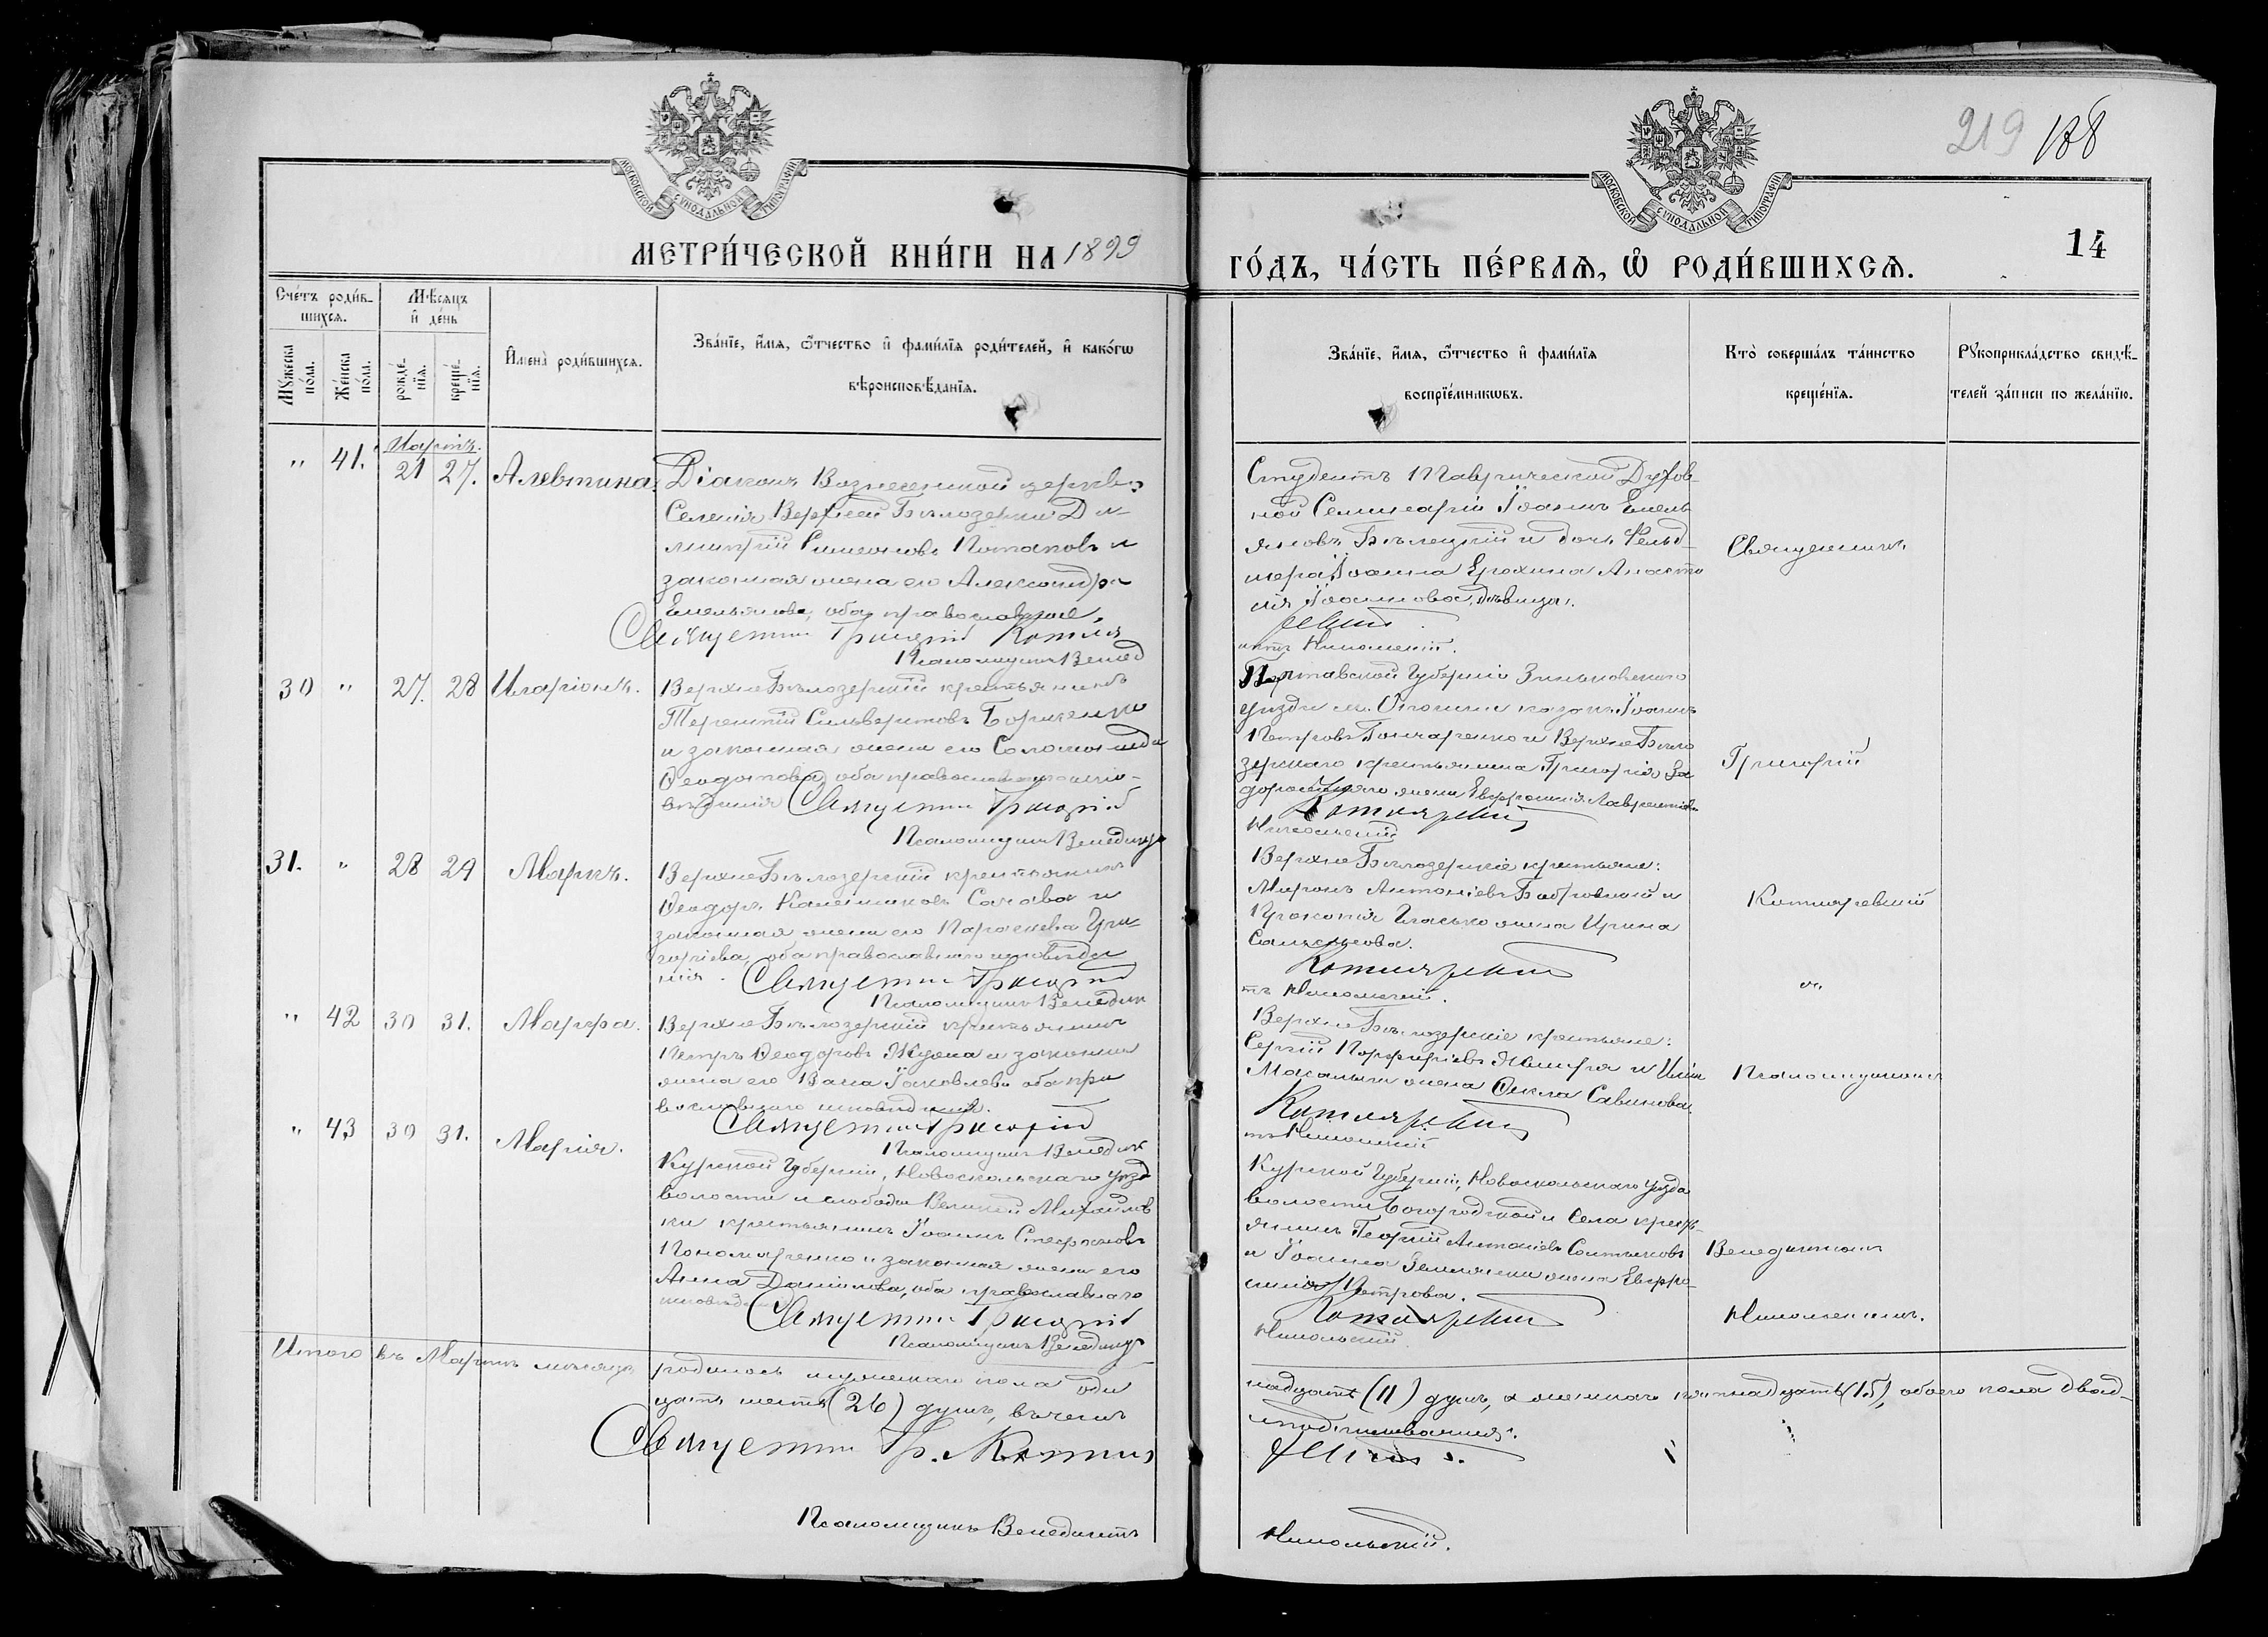 219 188
МОСКОВСКОЙ СѴНОДАЛЬНОЙ ТИПОГРАФІИ
МОСКОВСКОЙ СѴНОДАЛЬНОЙ ТИПОГРАФІИ
14
МЕТРИ́ЧЕСКОЙ КНИ́ГИ НА 1899
ГО́ДЪ, ЧА́СТЬ ПЕ́РВАѦ, Ѡ҆ РОДИ́ВШИХСѦ.
Сче́тъ роди́в-
шихсѧ.
Мꙋ́жеска
по́ла.
Же́нска
по́ла.
Мѣ́сѧцъ
и҆ де́нь
рожде́-
нїѧ.
креще́-
нїѧ.
И҆мена̀ роди́вшихсѧ.
Зва́нїе, и҆́мѧ, ѻ҆́тчество и҆ фами́лїѧ роди́телей, и҆ како́гѡ
вѣроисповѣ́данїѧ.
Зва́нїе, и҆́мѧ, ѻ҆́тчество и҆ фами́лїѧ
воспрїе́мникѡвъ.
Кто̀ соверша́лъ та́инство
креще́нїѧ.
Рꙋкоприкла́дство свидѣ́-
телей за́писи по жела́нїю.
Мартъ.
" 41. 21 27. Алевтина.
Діаконъ Вознесенской церкви
Селенія Верхней Бѣлозерки Ди-
митрій Симеоновъ Потаповъ и
законная жена его Александра
Емельянова, оба православные.
Священникъ Григорій Котля
Псаломщикъ Венед
Студентъ Таврической Духов-
ной Семинаріи Іоаннъ Емель
яновъ Бѣлецкій и дочь Фельд-
шера Іоанна Ерохина Анаста
сія Іоаннова, дѣвица.
ревскій
иктъ Никольскій.
30 " 27. 28 Иларіонъ.
Верхне Бѣлозерскій крестьянинъ
Терентій Сильвестровъ Борисенко
и законная жена его Соломонида
Ѳеодотова, оба православнаго испо-
вѣданія Священникъ Григорій
Псаломщикъ Венедиктъ
Полтавской Губерніи Зиньковскаго
уѣзда м. Опошни козакъ Іоаннъ
Петровъ Гончаренко и Верхне Бѣло
зерскаго крестьянина Григорія За
дорожнаго жена Евфросинія Лаврентіева
Котляревскій
Никольскій
31. " 28 29 Маркъ.
Верхне Бѣлозерскій крестьянинъ
законная жена его Параскева Гри-
горіева, оба православнаго исповѣда
нія. Священникъ Григорій
Псаломщикъ Венедик
Верхне Бѣлозерскіе крестьяне:
Миронъ Антоніевъ Бобровный и
Прокопія жена Ирина
Котляревскій
тъ Никольскій.
" 42 30 31. Марѳа.
Верхне Бѣлозерскій крестьянинъ
Петръ Ѳеодоровъ и законная
жена его Васса Іаковлева оба пра
вославнаго исповѣданія.
Священникъ Григорій
Псаломщикъ Венедик
Верхне Бѣлозерскіе крестьяне:
Сергій Порфиріевъ и
жена Ѳекла Савинова.
Котляревскій
тъ Никольскій
" 43 30 31. Марія.
Курской Губерніи, Новооскольскаго уѣзда
волости и слободы Великой Михайлов
ки крестьянинъ Іоаннъ Стефановъ
Пономаренко и законная жена его
Анна Даніилова, оба православнаго
исповѣданія
Священникъ Григорій
Псаломщикъ Венедиктъ
Курской Губерніи, Новооскольскаго уѣзда
волости Богородской и Села крестья-
янинъ Георгій Антоніевъ Сотниковъ
и Іоанна жена Евфро-
синія Петрова.
Котляревскій
Никольскій
Священникъ
Григорій
Котляревскій
съ
Псаломщикомъ
Венедиктомъ
Никольскимъ.
Итого въ Мартѣ мѣсяцѣ родилось мужескаго пола оди
надцать (11) душъ, а женскаго пятнадцать (15), обоего пола двад-
цать шесть (26) душъ, въ чемъ
и подписываемся.
Священникъ Гр. Котля
ревскій.
Псаломщикъ Венедиктъ
Никольскій.